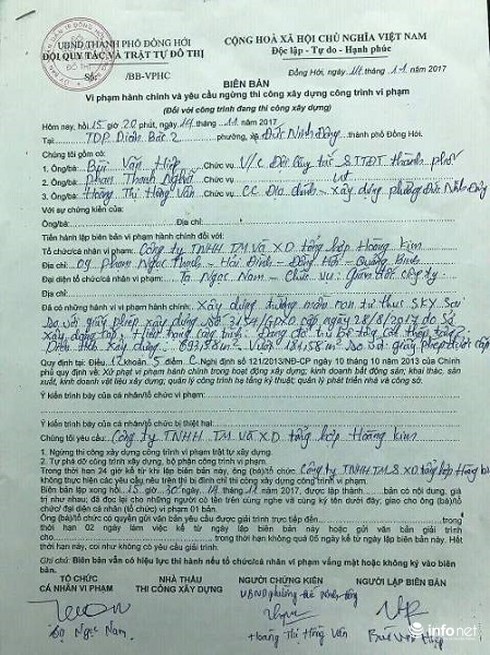 UBND THÀNH PHỐ ĐỒNG HỚI
ĐỘI QUY TẮC VÀ TRẬT TỰ ĐÔ THỊ
Số: /BB-VPHC
CỘNG HOÀ XÃ HỘI CHỦ NGHĨA VIỆT NAM
Độc lập - Tự do - Hạnh phúc
Đồng Hới, ngày 14 tháng 11 năm 2017
BIÊN BẢN
Vi phạm hành chính và yêu cầu ngừng thi công xây dựng công trình vi phạm
(Đối với công trình đang thi công xây dựng)
Hôm nay, hồi 15 giờ 20 phút, ngày 14 tháng 11 năm 2017
Tại TDP Diêm Bắc 2 phường, xã Đức Ninh Đông thành phố Đồng Hới.
Chúng tôi gồm có:
1. Ông/bà: Bùi Văn Hiệp Chức vụ V/C Đội Quy tắc & TTĐT thành phố
2. Ông/bà: Phan Thanh Nghĩa Chức vụ
3. Ông/bà: Hoàng Thị Hồng Vân Chức vụ CC Địa chính - Xây dựng phường Đức Ninh Đông
Với sự chứng kiến của:
Ông/bà: Địa chỉ:
Tiến hành lập biên bản vi phạm hành chính đối với:
Tổ chức/cá nhân vi phạm: Công ty TNHH TM và XD tổng hợp Hoàng Kim
Địa chỉ: 09 Phan Ngọc - Hải Đình - Đồng Hới - Quảng Bình
Đại diện tổ chức/cá nhân vi phạm: Tạ Ngọc Nam - Chức vụ: Giám đốc công ty
Địa chỉ:
Đã có những hành vi vi phạm hành chính: Xây dựng trường mầm non tư thục SKY
so với giấy phép xây dựng số 3154/GPXD cấp ngày 28/8/2017 do Sở
Xây dựng cấp
Diện tích xây dựng so với giấy phép được cấp
Quy định tại: Điều 12 khoản 5 điểm C Nghị định số 121/2013/NĐ-CP ngày 10 tháng 10 năm 2013 của Chính
phủ quy định về: Xử phạt vi phạm hành chính trong hoạt động xây dựng; kinh doanh bất động sản; khai thác, sản
xuất, kinh doanh vật liệu xây dựng; quản lý công trình hạ tầng kỹ thuật; quản lý phát triển nhà và công sở.
Ý kiến trình bày của cá nhân/tổ chức vi phạm:
Ý kiến trình bày của cá nhân/tổ chức bị thiệt hại:
Chúng tôi yêu cầu: Công ty TNHH TM và XD tổng hợp Hoàng Kim
1. Ngừng thi công xây dựng công trình vi phạm trật tự xây dựng.
2. Tự phá dỡ công trình xây dựng, bộ phận công trình vi phạm.
Trong thời hạn 24 giờ kể từ khi lập biên bản này, ông/bà/tổ chức: Công ty TNHH TM & XD tổng hợp Hoàng
không thực hiện các yêu cầu nêu trên thì bị đình chỉ thi công xây dựng theo quy định.
Biên bản lập xong hồi 15 giờ 30 ngày 14 tháng 11 năm 2017, được lập thành bản có nội dung, giá
trị như nhau; đã đọc lại cho những người có tên trên cùng nghe và cùng ký tên dưới đây; giao cho ông (bà)/tổ
chức/đại diện cá nhân (tổ chức) vi phạm 01 bản.
Ông (bà)/tổ chức có quyền gửi văn bản yêu cầu được giải trình trực tiếp đến trong
thời hạn 02 ngày làm việc kể từ ngày lập biên bản này hoặc gửi văn bản giải trình
cho trong thời hạn không quá 05 ngày kể từ ngày lập biên bản này. Hết
thời hạn này, coi như không có yêu cầu giải trình
Ghi chú: Biên bản vẫn có hiệu lực thi hành nếu tổ chức/cá nhân vi phạm vắng mặt hoặc không ký vào biên bản.
TỔ CHỨC
CÁ NHÂN VI PHẠM
NHÀ THẦU
THI CÔNG XÂY DỰNG
NGƯỜI CHỨNG KIẾN
NGƯỜI LẬP BIÊN BẢN
Tạ Ngọc Nam
Hoàng Thị Hồng Vân
Bùi Văn Hiệp
infonet